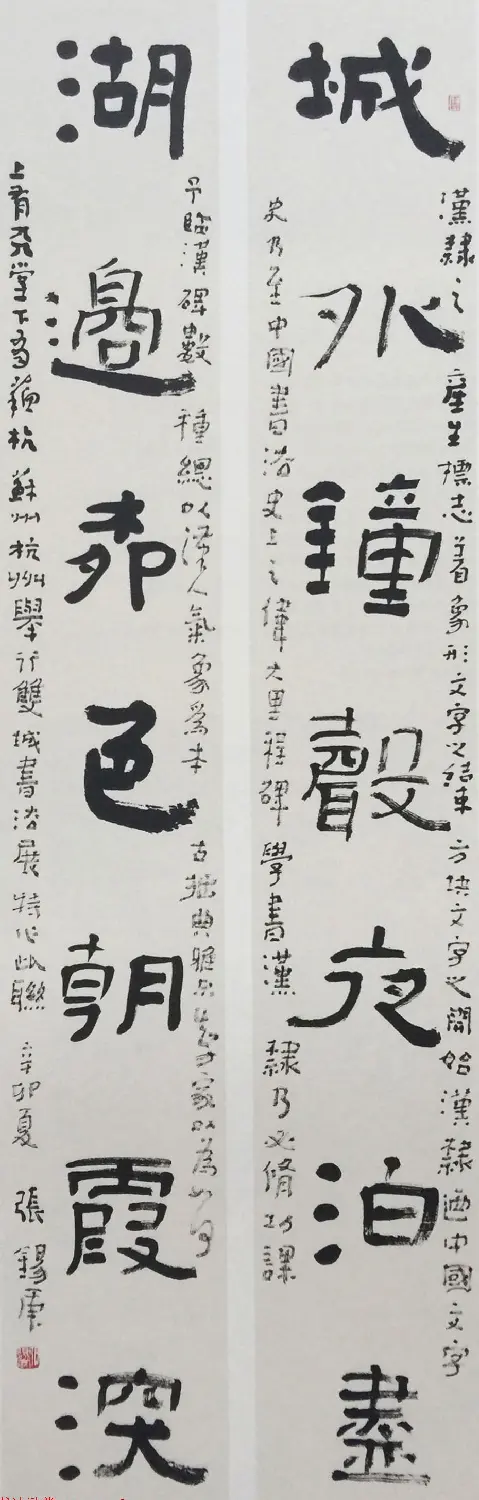 漢隸之產生標志着象形文字之結束方块文字之開始漢隸迺中國文字
城外鐘聲夜泊盡
史乃至中國書法史上之偉大里程碑學書漢隸乃必修功課
予臨漢碑數十種總以漢人氣象爲本古拙典雅方家以為如何
湖邊柳色朝霞深
上有天堂下有蘇杭蘇州杭州舉行雙城書法展特作此聯辛卯夏張錫庚